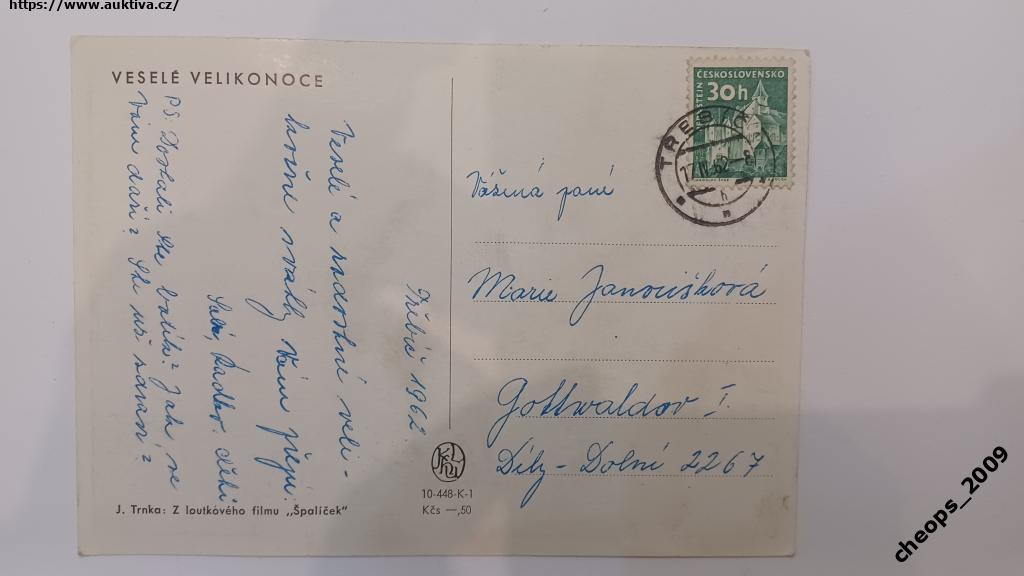 https://www.auktiva.cz/
VESELÉ VELIKONOCE
Třebíč 1962.
Veselé a radostné veli-
konoční svátky Vám přejí
Radka děti
PS: Dostali ste balík? Jak se
Vám daří? Ste už zdraví?
J. Trnka: Z loutkového filmu „Špalíček"
10-448-K-1
Kčs —,50
ČESKOSLOVENSKO
30h
TŘEBÍČ
17.IV.62-8
h
Vážená paní
Marie Janoušková
Gottwaldov I.
Díly - Dolní 2267
cheops_2009